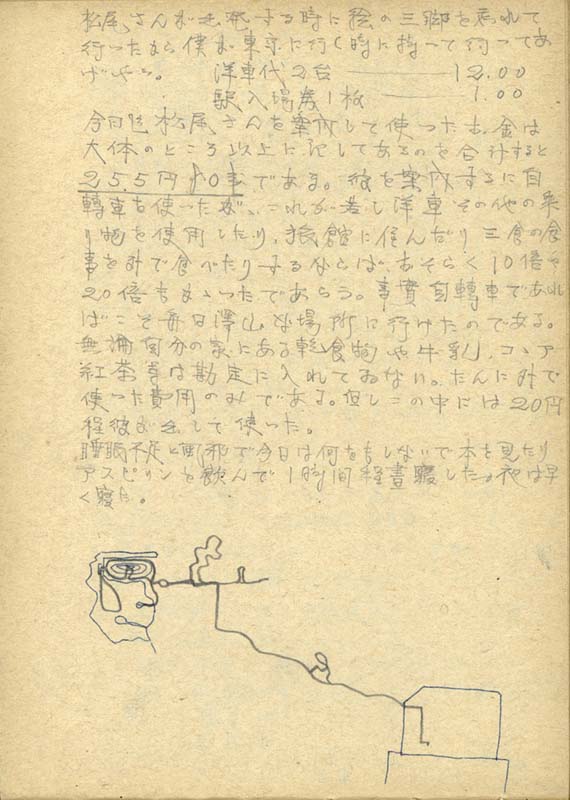 松尾さんが出発する時に絵の三脚を忘れて
行ったから僕が東京に行く時に持って行ってあ
げやう。 洋車代2台 ――― 12.00
駅入場券1枚 ――― 1.00
今日迄松尾さんを案内して使ったお金は
大体のところ以上に記してあるのを合計すると
25.5円 である。彼を案内するに自
轉車を使ったが、これが若し洋車その他の乗
り物を使用したり、旅館に住んだり三食の食
事を外で食べたりするならばおそらく10倍や
20倍もかゝったであらう。事實自轉車であれ
ばこそ毎日澤山な場所に行けたのである。
無論自分の家にある乾食物や牛乳、コヽア
紅茶等は勘定に入れてゐない。たんに外で
使った費用のみである。但しこの中には20円
程彼が出して使った。
睡眠不足と風邪で今日は何をもしないで本を見たり
アスピリンを飲んで1時間程晝寢した。夜は早
く寢た。